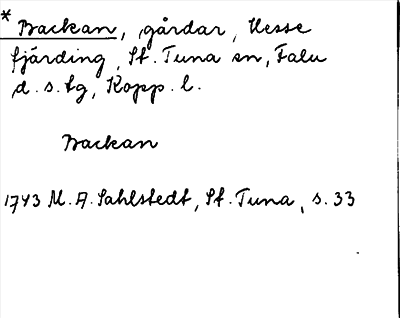 * Backan, gårdar, Uesse
fjärding, St. Tuna sn, Falu
d. s. tg, Kopp. l.
Backan
1743 M. A. Sahlstedt, St. Tuna, s. 33